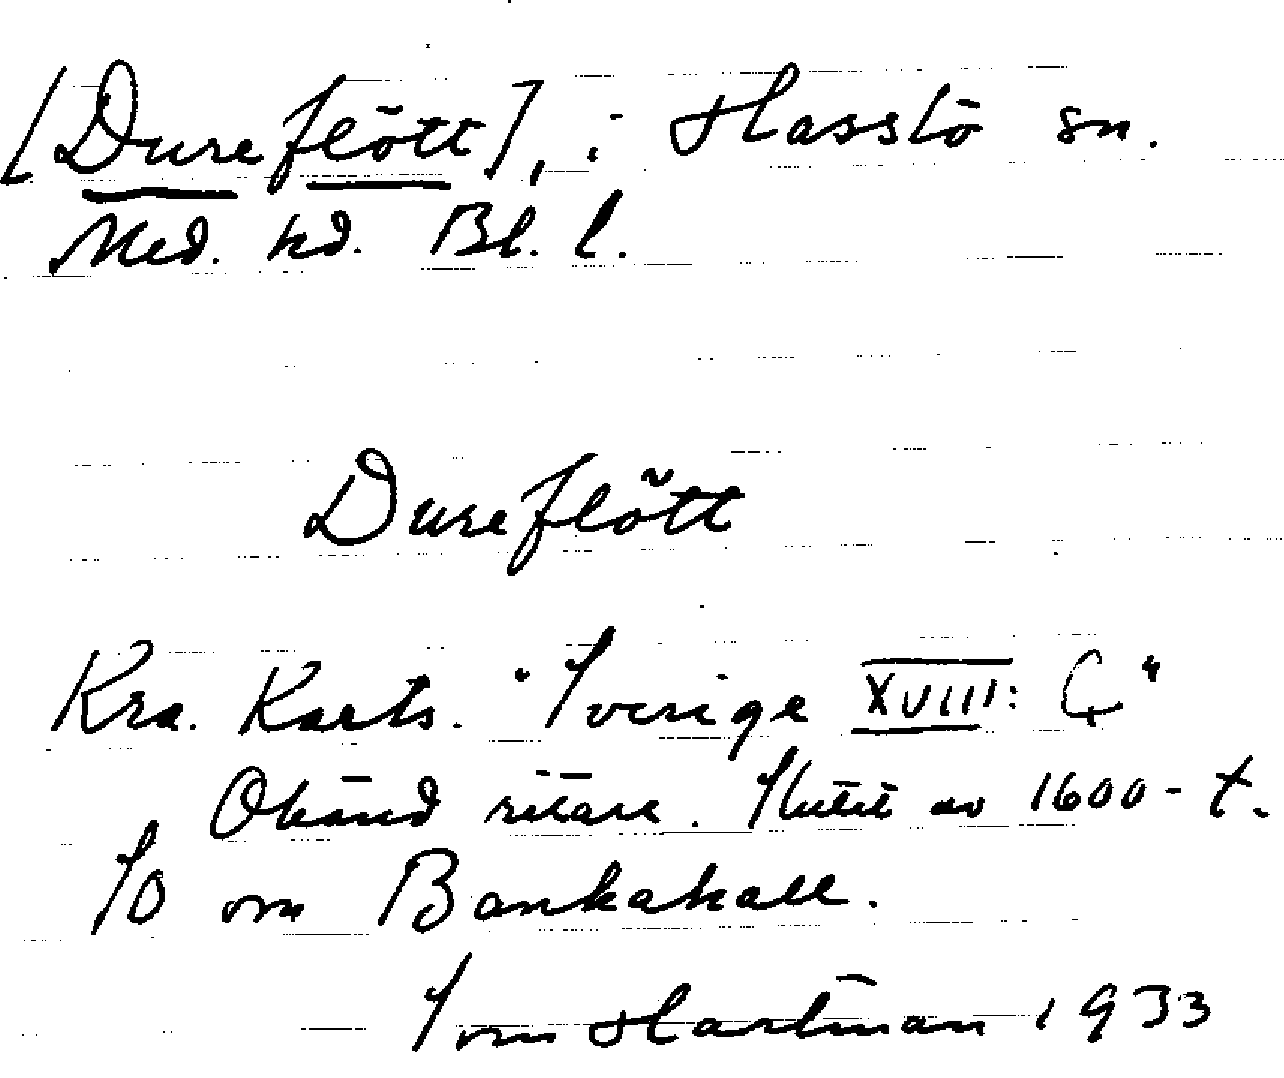 [Dureflött], i Hasslö sn.
Med. hd. Bl. l.
Dureflött
Kra. Karts. "Sverige XVIII: C"
Okänd ritare. Slutet av 1600-t.
SO om Bankahall.
Sven Hartman 1933